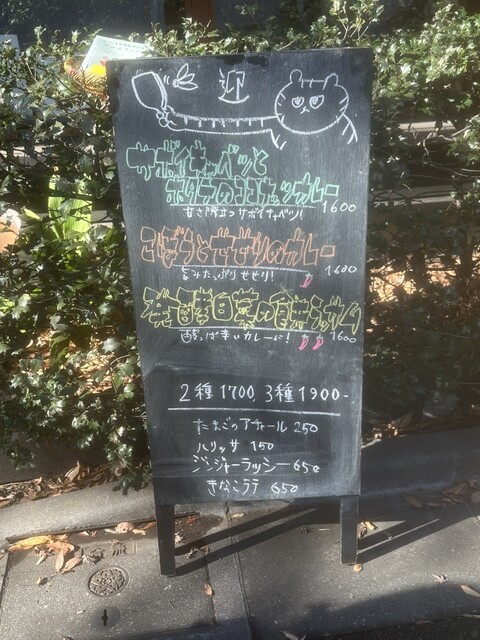 迎
サボイキャベツと
ホタテのココナッツカレー
甘さ際立つサボイキャベツ! 1600
ごぼうとせせりのカレー
旨みたっぷりせせり! 1600
発酵白菜の
1600
2種1700, 3種1900-
たまごのアチャール 250
ハリッサ 150
ジンジャーラッシー 650
きなこラテ 650